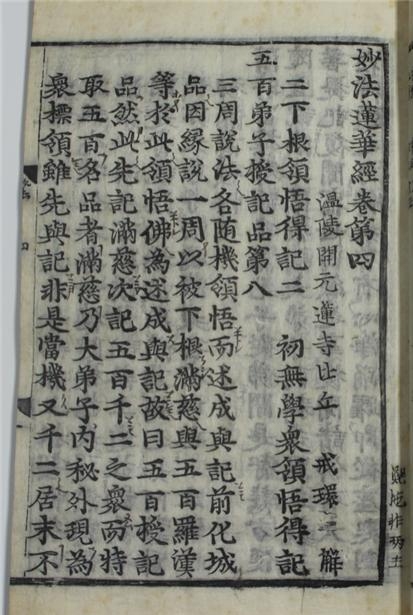 妙法蓮華經卷第四
溫陵開元蓮寺比丘 戒環 解
二下根領悟得記二 初無學衆領悟得記
五百弟子授記品第八
三周說法各随機領悟而述成與記前化城
品因緣說一周以被下根滿慈與五百羅漢
等於此領悟佛為述成與記故曰五百授記
品然此先記滿慈次記五百千二之衆而特
取五百名品者滿慈乃大弟子內秘外現為
衆標領雖先與記非是當機又千二居末不